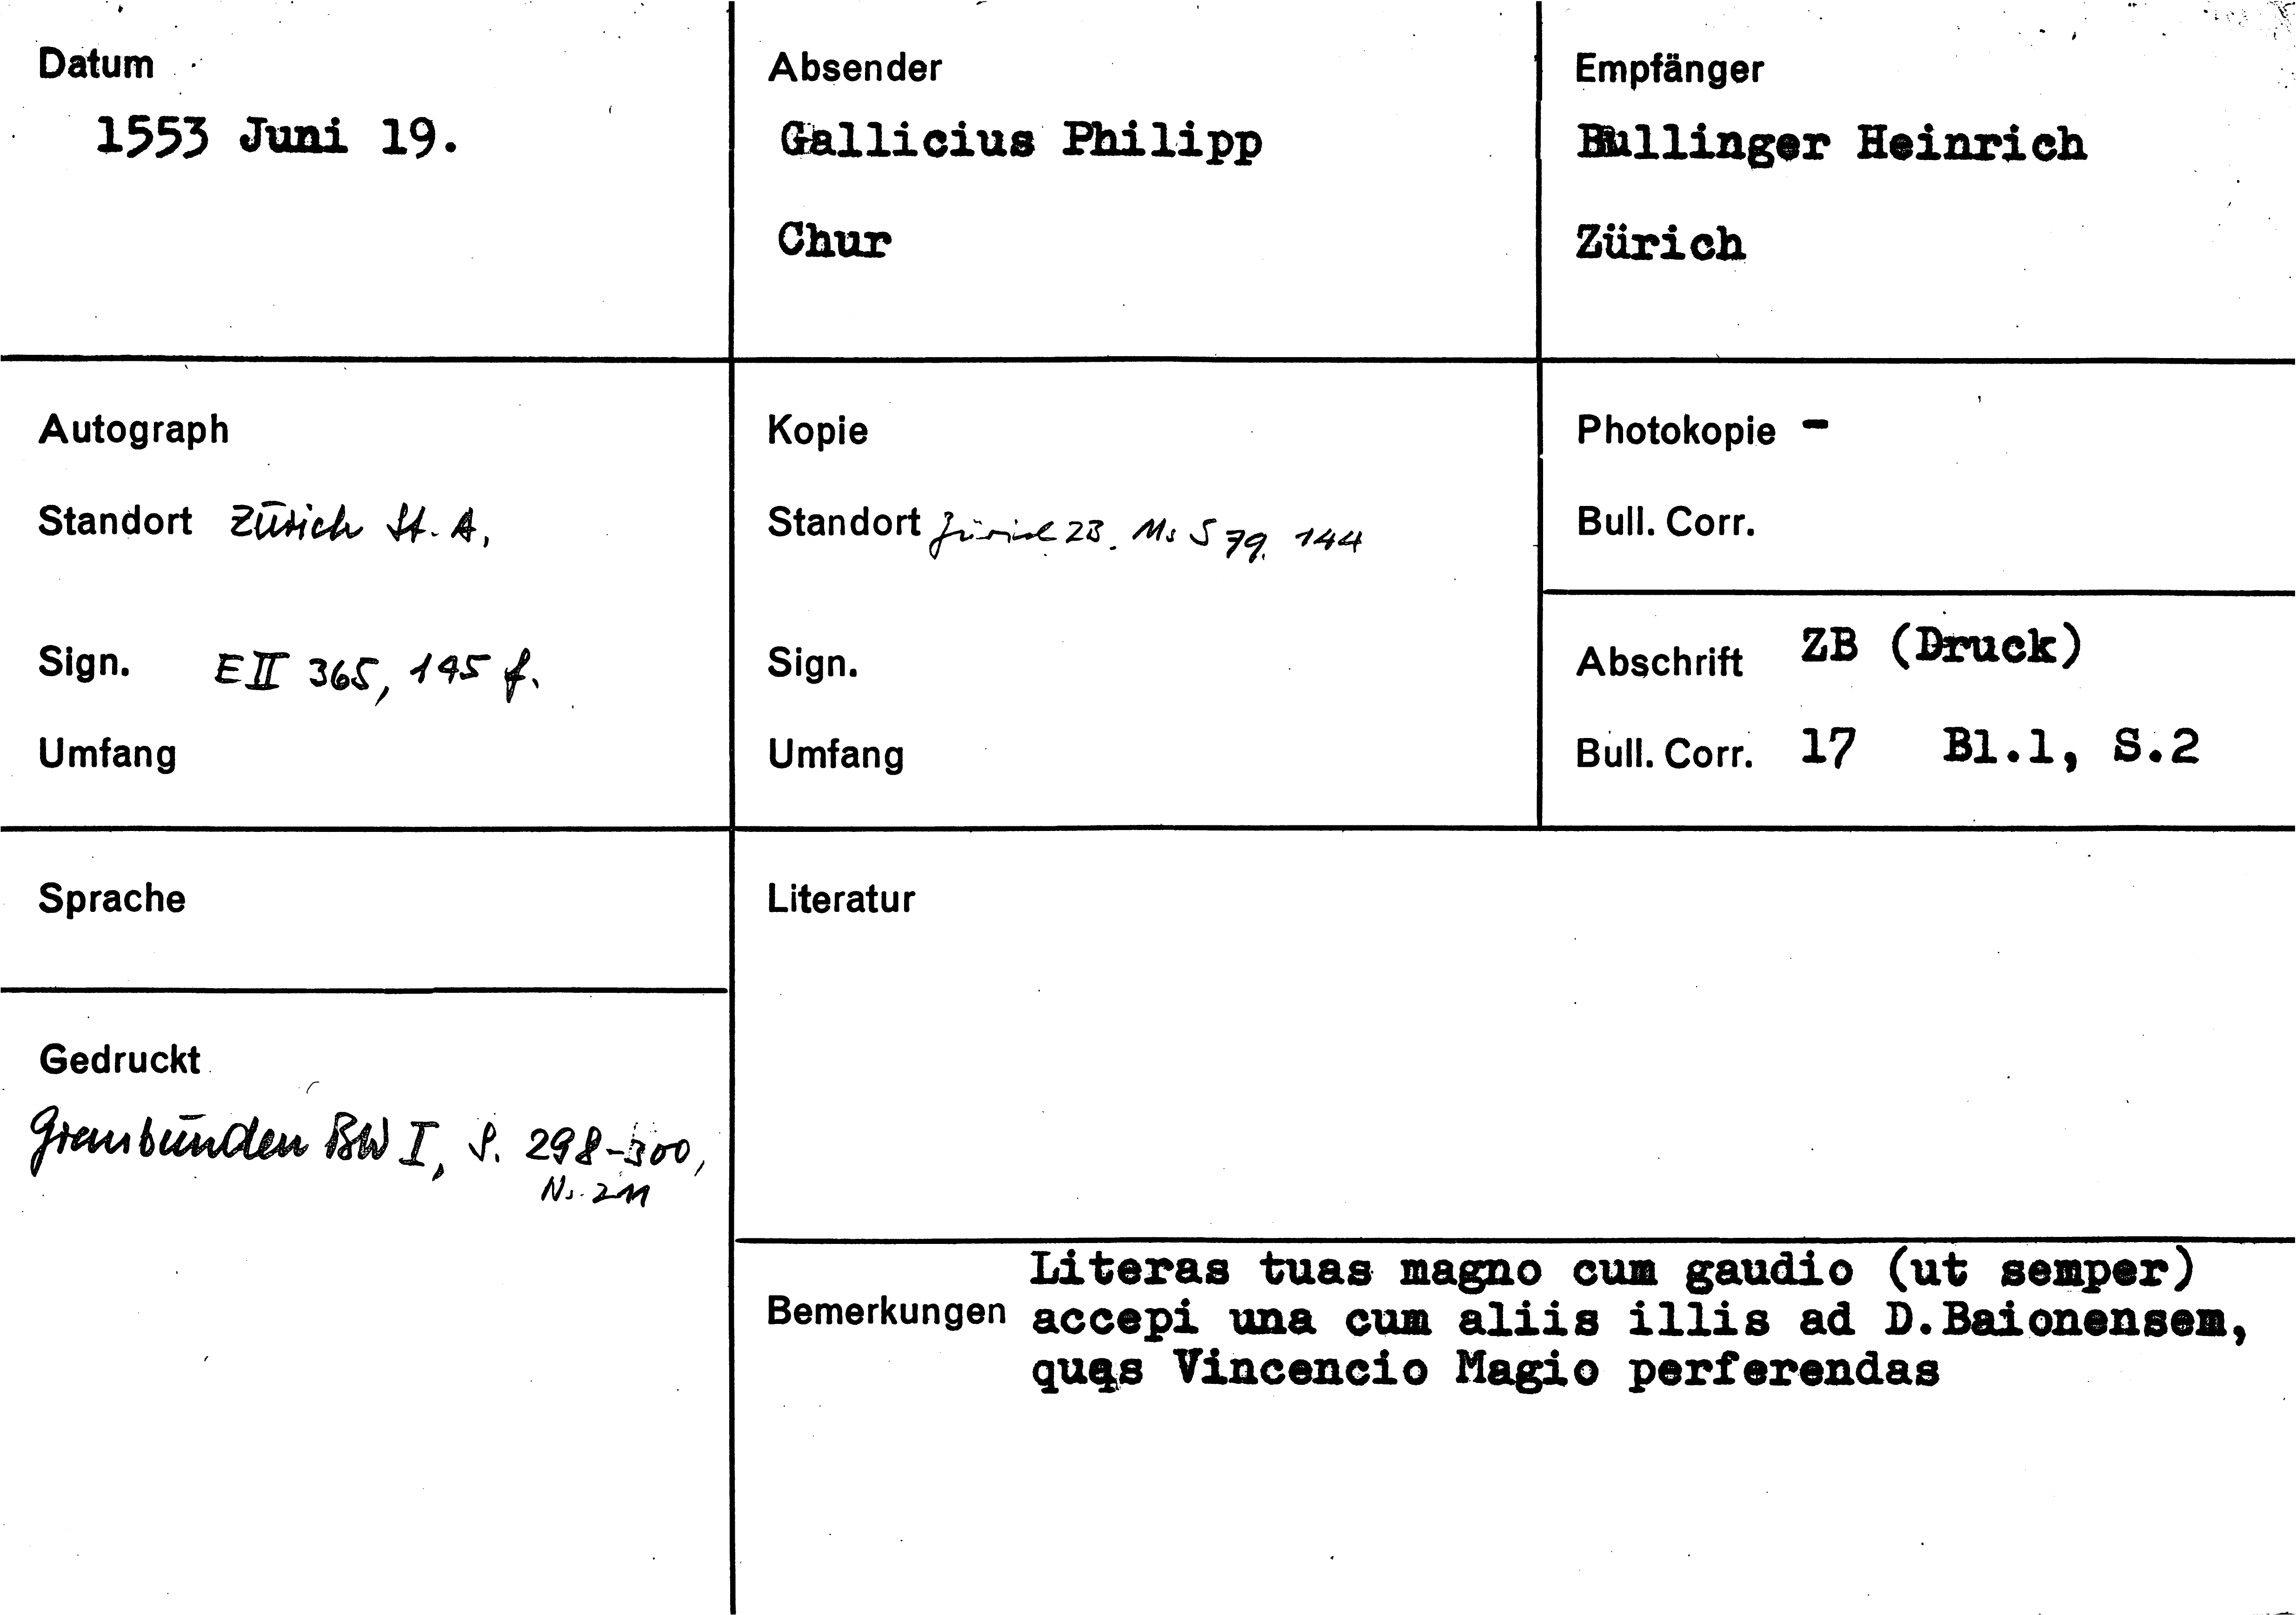 Datum
1553 Juni 19.
Absender
Gallicius Philipp
Chur
Empfänger
Bullinger Heinrich
Zürich
Autograph
Standort Zürich St. A.
Sign. E II 365, 145 f.
Umfang
Kopie
Standort Zürich ZB. Ms S 79. 144
Sign.
Umfang
Photokopie -
Bull. Corr.
Abschrift ZB (Druck)
Bull. Corr. 17 Bl.1, S.2
Sprache
Gedruckt
Graubünden BW I, S. 298-300,
Nr. 211
Literatur
Bemerkungen
Literas tuas magno cum gaudio (ut semper)
accepi una cum aliis illis ad D.Baionensem,
quas Vincencio Magio perferendas